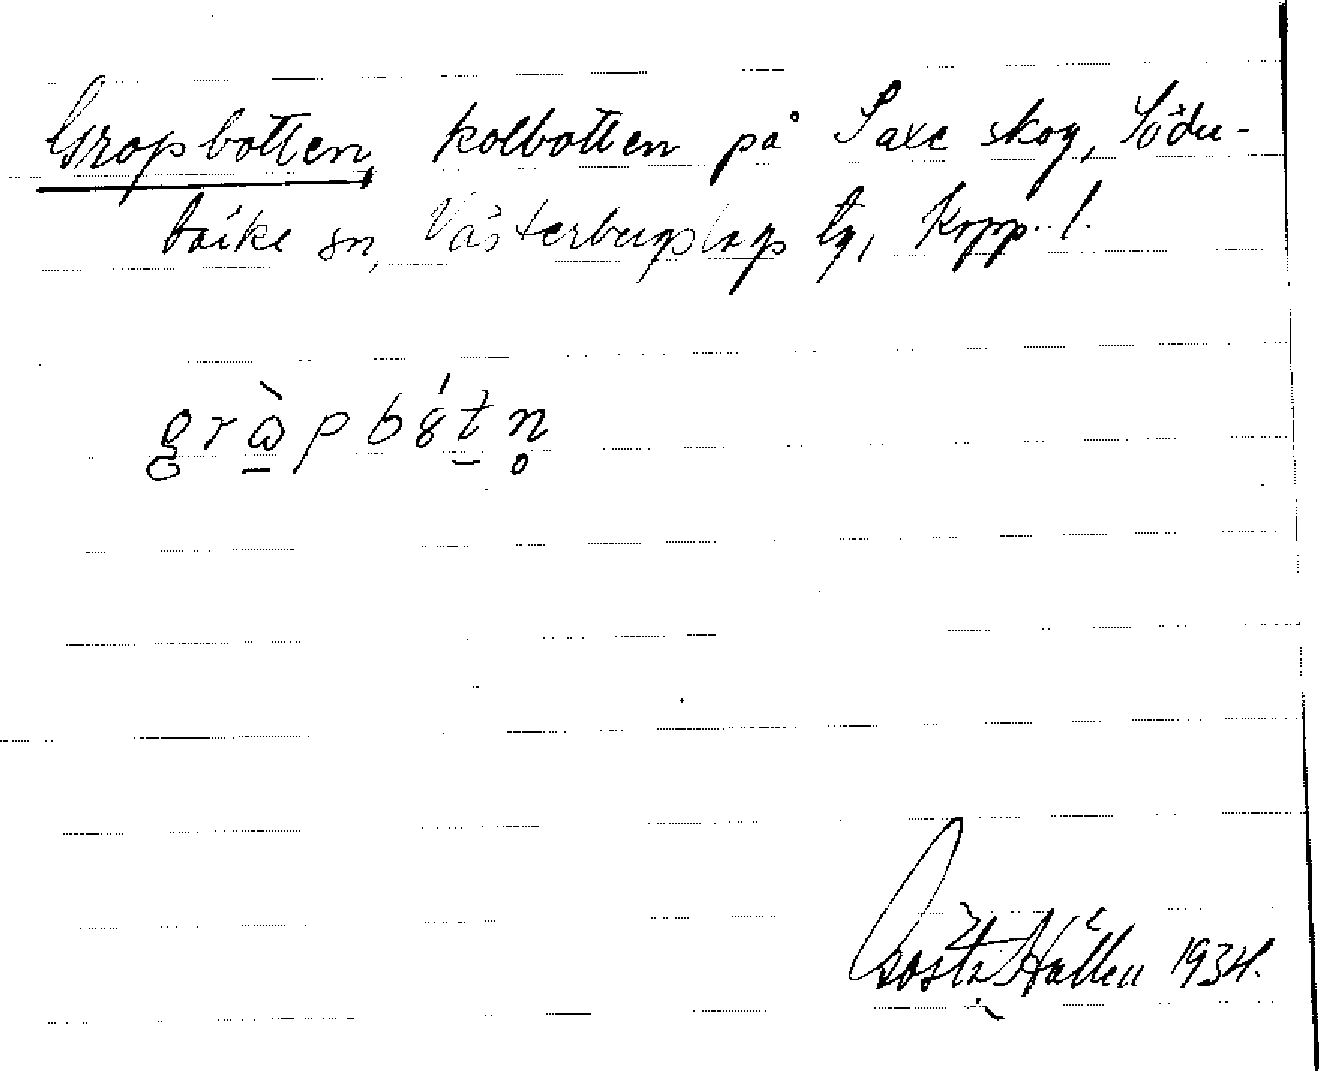 Gropbotten, kolbotten på Saxe skog, Söder-
bärke sn, Västerbergslags tg, Kopp. l.
gròpbótn̥
Gösta Hållen 1934.